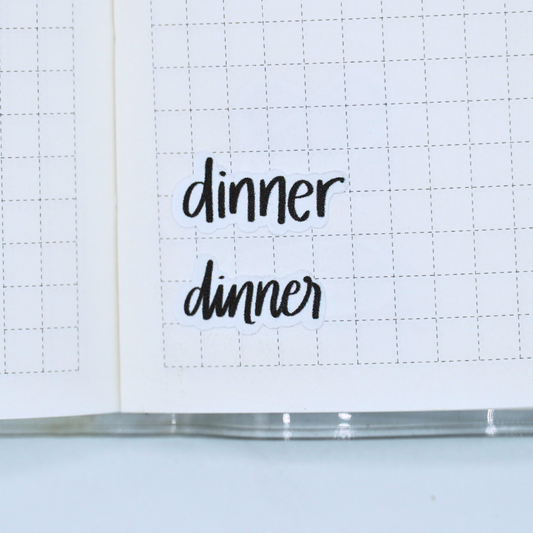 dinner
dinner